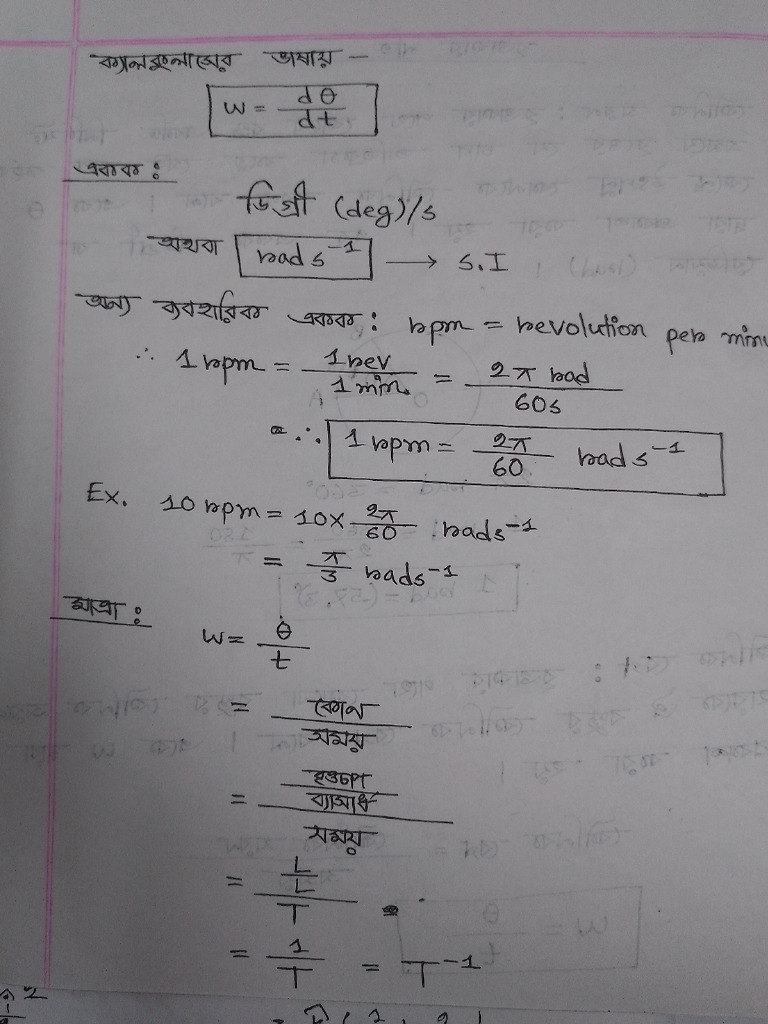 ক্যালকুলাসের ভাষায় –
W = dθ/dt
একক :
ডিগ্রী (deg)/s
অথবা rad s⁻¹ → S.I
অন্য ব্যবহারিক একক : rpm = revolution per minu
∴ 1 rpm = 1 rev/1 min. = 2π rad/60s
∴ 1 rpm = 2π/60 rad s⁻¹
Ex. 10 rpm = 10 × 2π/60 rads⁻¹
= π/3 rads⁻¹
মাত্রা :
W = θ/t
= কোন/সময়
= বৃত্তচাপ/ব্যাসার্ধ/সময়
= L/L/T
= 1/T = T⁻¹